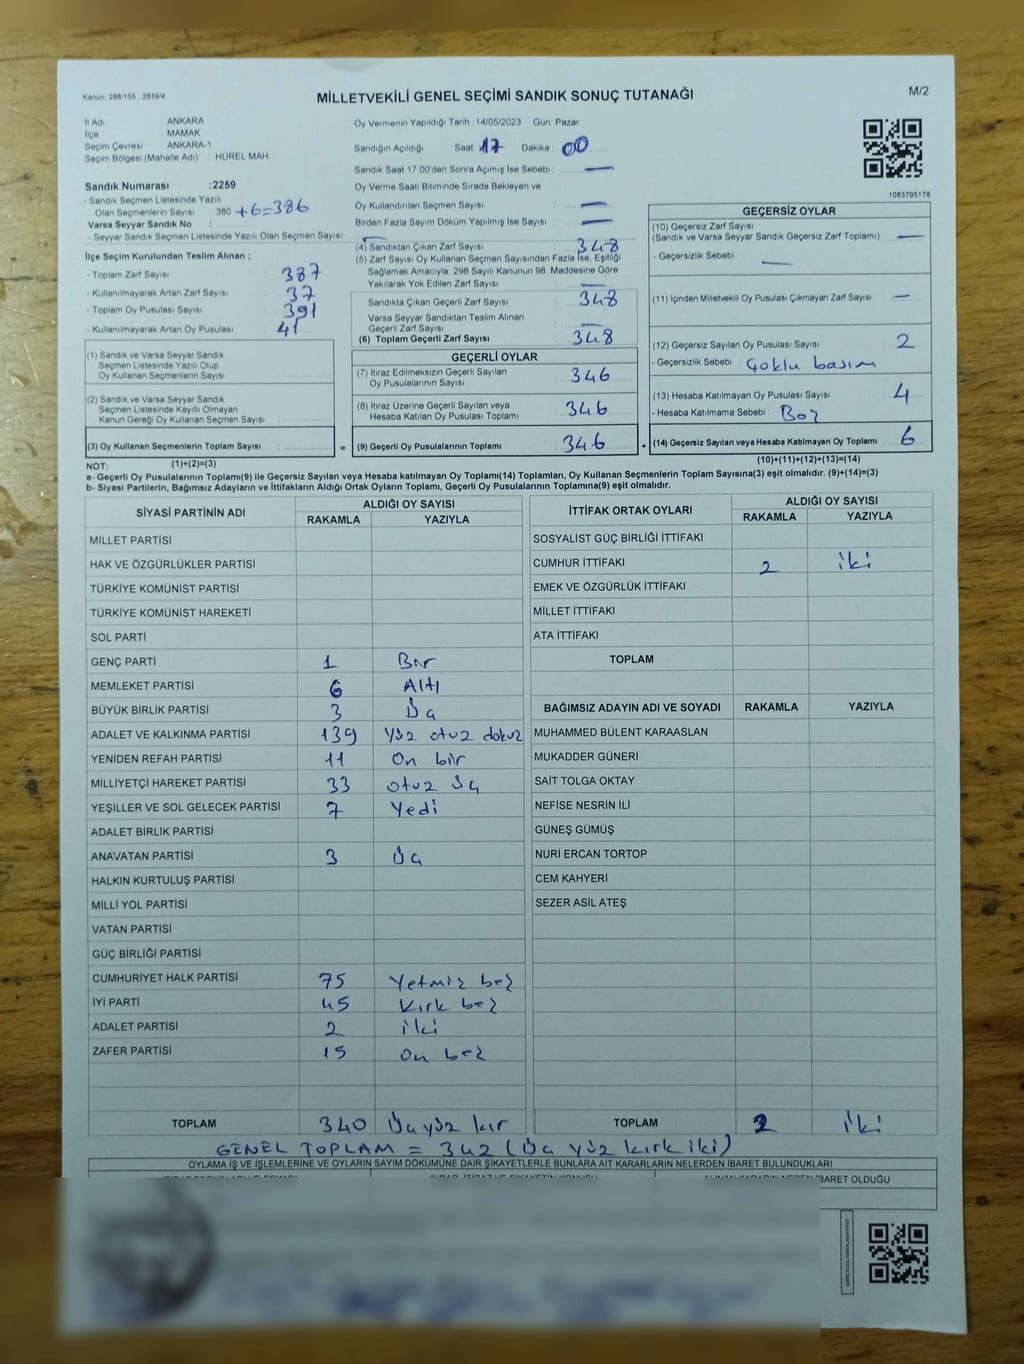 Kanun, 298/105 , 2839/4
MİLLETVEKİLİ GENEL SEÇİMİ SANDIK SONUÇ TUTANAĞI
M/2
İl Adı : ANKARA
İlçe : MAMAK
Seçim Çevresi : ANKARA-1
Seçim Bölgesi (Mahalle Adı) : HÜREL MAH.
Sandık Numarası :2259
- Sandık Seçmen Listesinde Yazılı
Olan Seçmenlerin Sayısı : 380 +6=386
Varsa Seyyar Sandık No :
- Seyyar Sandık Seçmen Listesinde Yazılı Olan Seçmen Sayısı:
İlçe Seçim Kurulundan Teslim Alınan ;
- Toplam Zarf Sayısı : 387
- Kullanılmayarak Artan Zarf Sayısı : 37
- Toplam Oy Pusulası Sayısı : 391
- Kullanılmayarak Artan Oy Pusulası : 41
(1) Sandık ve Varsa Seyyar Sandık
Seçmen Listesinde Yazılı Olup
Oy Kullanan Seçmenlerin Sayısı :
(2) Sandık ve Varsa Seyyar Sandık
Seçmen Listesinde Kayıtlı Olmayan
Kanun Gereği Oy Kullanan Seçmen Sayısı :
(3) Oy Kullanan Seçmenlerin Toplam Sayısı : =
Oy Vermenin Yapıldığı Tarih :14/05/2023 Gün: Pazar
Sandığın Açıldığı Saat: 17 Dakika : 00
Sandık Saat 17:00'den Sonra Açılmış İse Sebebi : —
Oy Verme Saati Bitiminde Sırada Bekleyen ve
Oy Kullandırılan Seçmen Sayısı : —
Birden Fazla Sayım Döküm Yapılmış İse Sayısı : —
(4) Sandıktan Çıkan Zarf Sayısı : 348
(5) Zarf Sayısı Oy Kullanan Seçmen Sayısından Fazla İse, Eşitliği
Sağlamak Amacıyla, 298 Sayılı Kanunun 98. Maddesine Göre
Yakılarak Yok Edilen Zarf Sayısı : —
Sandıkta Çıkan Geçerli Zarf Sayısı : 348
Varsa Seyyar Sandıktan Teslim Alınan
Geçerli Zarf Sayısı : —
(6) Toplam Geçerli Zarf Sayısı : 348
GEÇERLİ OYLAR
(7) İtiraz Edilmeksizin Geçerli Sayılan
Oy Pusulalarının Sayısı : 346
(8) İtiraz Üzerine Geçerli Sayılan veya
Hesaba Katılan Oy Pusulaları Toplamı : 346
(9) Geçerli Oy Pusulalarının Toplamı : 346 +
1083795178
GEÇERSİZ OYLAR
(10) Geçersiz Zarf Sayısı
(Sandık ve Varsa Seyyar Sandık Geçersiz Zarf Toplamı) : —
- Geçersizlik Sebebi : —
(11) İçinden Milletvekili Oy Pusulası Çıkmayan Zarf Sayısı : —
(12) Geçersiz Sayılan Oy Pusulası Sayısı : 2
- Geçersizlik Sebebi : Çoklu basım
(13) Hesaba Katılmayan Oy Pusulası Sayısı : 4
- Hesaba Katılmama Sebebi : Boş
(14) Geçersiz Sayılan veya Hesaba Katılmayan Oy Toplamı : 6
NOT: (1)+(2)=(3) (10)+(11)+(12)+(13)=(14)
a- Geçerli Oy Pusulalarının Toplamı(9) ile Geçersiz Sayılan veya Hesaba katılmayan Oy Toplamı(14) Toplamları, Oy Kullanan Seçmenlerin Toplam Sayısına(3) eşit olmalıdır. (9)+(14)=(3)
b- Siyasi Partilerin, Bağımsız Adayların ve İttifakların Aldığı Ortak Oyların Toplamı, Geçerli Oy Pusulalarının Toplamına(9) eşit olmalıdır.
SİYASİ PARTİNİN ADI ALDIĞI OY SAYISI
RAKAMLA YAZIYLA
MİLLET PARTİSİ
HAK VE ÖZGÜRLÜKLER PARTİSİ
TÜRKİYE KOMÜNİST PARTİSİ
TÜRKİYE KOMÜNİST HAREKETİ
SOL PARTİ
GENÇ PARTİ 1 Bir
MEMLEKET PARTİSİ 6 Altı
BÜYÜK BİRLİK PARTİSİ 3 Üç
ADALET VE KALKINMA PARTİSİ 139 Yüz otuz dokuz
YENİDEN REFAH PARTİSİ 11 On bir
MİLLİYETÇİ HAREKET PARTİSİ 33 otuz üç
YEŞİLLER VE SOL GELECEK PARTİSİ 7 Yedi
ADALET BİRLİK PARTİSİ
ANAVATAN PARTİSİ 3 Üç
HALKIN KURTULUŞ PARTİSİ
MİLLİ YOL PARTİSİ
VATAN PARTİSİ
GÜÇ BİRLİĞİ PARTİSİ
CUMHURİYET HALK PARTİSİ 75 Yetmiş beş
İYİ PARTİ 45 Kırk beş
ADALET PARTİSİ 2 iki
ZAFER PARTİSİ 15 On beş
TOPLAM 340 Üçyüz kır
İTTİFAK ORTAK OYLARI ALDIĞI OY SAYISI
RAKAMLA YAZIYLA
SOSYALİST GÜÇ BİRLİĞİ İTTİFAKI
CUMHUR İTTİFAKI 2 iki
EMEK VE ÖZGÜRLÜK İTTİFAKI
MİLLET İTTİFAKI
ATA İTTİFAKI
TOPLAM
BAĞIMSIZ ADAYIN ADI VE SOYADI RAKAMLA YAZIYLA
MUHAMMED BÜLENT KARAASLAN
MUKADDER GÜNERİ
SAİT TOLGA OKTAY
NEFİSE NESRİN İLİ
GÜNEŞ GÜMÜŞ
NURİ ERCAN TORTOP
CEM KAHYERİ
SEZER ASİL ATEŞ
TOPLAM 2 iki
GENEL TOPLAM = 342 (Üç yüz kırk iki)
OYLAMA İŞ VE İŞLEMLERİNE VE OYLARIN SAYIM DÖKÜMÜNE DAİR ŞİKAYETLERLE BUNLARA AİT KARARLARIN NELERDEN İBARET BULUNDUKLARI
İBARET OLDUĞU